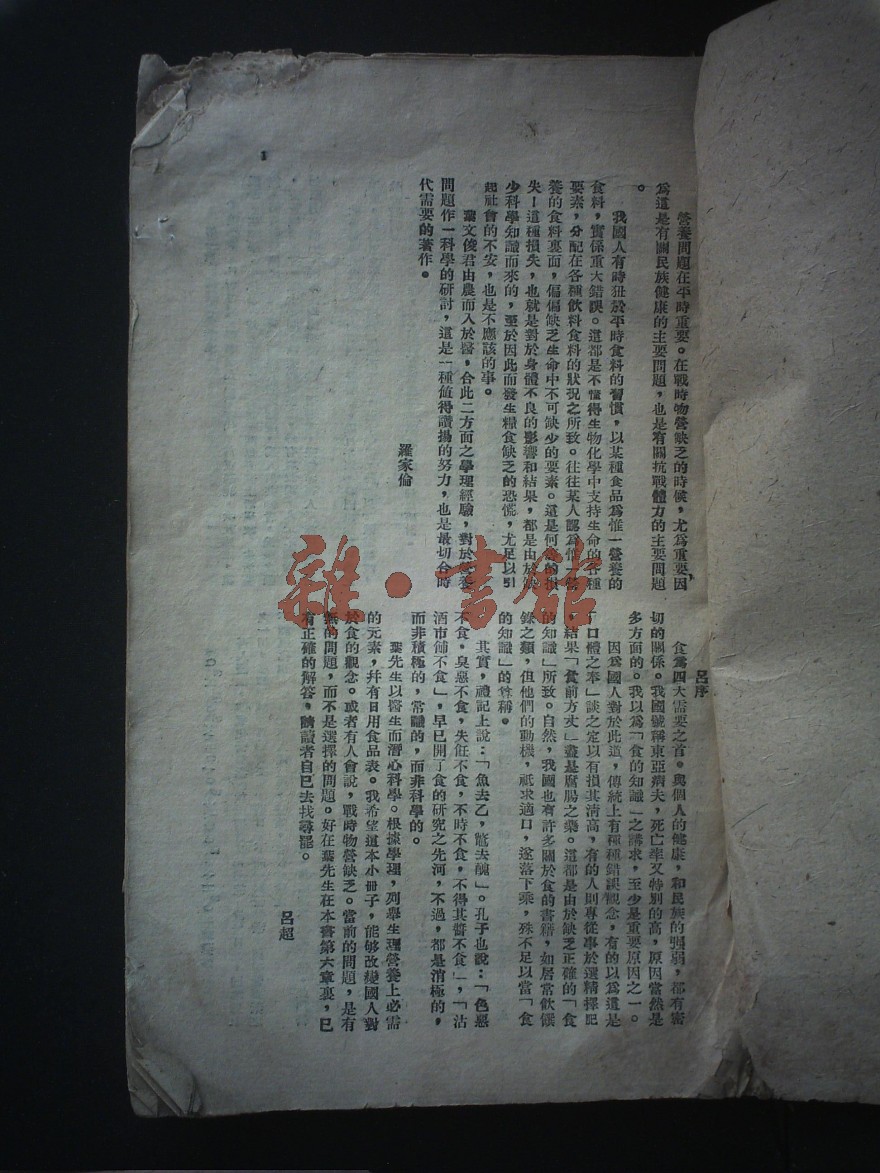 營養問題在平時重要。在戰時物營缺乏的時候，尤為重要，因
為這是有關民族健康的主要問題，也是有關抗戰體力的主要問題
。
我國人有時狃於平時食料的習慣，以某種食品為惟一營養的
食料，實係重大錯誤。這都是不懂得生物化學中支持生命的各種
要素，分配在各種飲料食料的狀況之所致。往往某人認為惟一營
養的食料裏面，偏偏缺乏生命中不可缺少的要素。這是何等的損
失！這種損失，也就是對於身體不良的影響和結果，都是由於缺
少科學知識而來的，至於因此而發生糧食缺乏的恐慌，尤足以引
起社會的不安，也是不應該的事。
葉文俊君由農而入於醫，合此二方面之學理經驗，對於營養
問題作一科學的研討，這是一種值得讚揚的努力，也是最切合時
代需要的著作。
羅家倫
呂序
食為四大需要之首。與個人的健康，和民族的强弱，都有密
切的關係。我國號稱東亞病夫，死亡率又特別的高，原因當然是
多方面的。我以為「食的知識」之講求，至少是重要原因之一。
因為國人對於此道，傳統上有種種錯誤觀念，有的以為這是
「口體之奉」談之定以有損其清高，有的人則專從事於選精擇肥
，結果「食前方丈」盡是腐腸之藥。這都是由於缺乏正確的「食
的知識」所致。自然，我國也有許多關於食的書籍，如居常飲饌
錄之類，但他們的動機，祇求適口，遂落下乘，殊不足以當「食
的知識」的尊稱。
其實，禮記上說：「魚去乙，鼈去醜」。孔子也說：「色惡
不食，臭惡不食，失飪不食，不時不食，不得其醬不食」，「沽
酒市脯不食」，早已開了食的研究之先河，不過，都是消極的，
而非積極的，常識的，而非科學的。
葉先生以醫生而潛心科學。根據學理，列舉生理營養上必需
的元素，幷有日用食品表。我希望這本小冊子，能够改變國人對
於食的觀念。或者有人會說，戰時物營缺乏。當前的問題，是有
無的問題，而不是選擇的問題。好在葉先生在本書第六章裏，已
有正確的解答，請讀者自己去找尋罷。
呂超
1
雜·書館